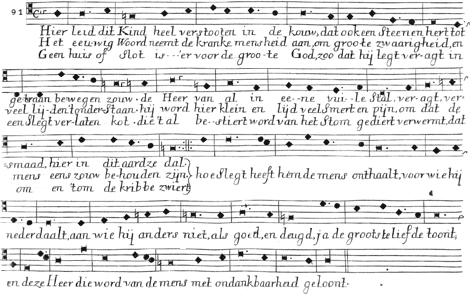 91
Hier leid dit Kind heel verstooten in de kouw, dat ook een Steenen hert tot
Het eeuwig Woord neemt de kranke mensheid aan, om groote zwaarigheid, en
Geen huis of slot is er voor de groote God, zoo dat hij legt veragt in
getraan bewegen zouw. de Heer van al in eene vuile Stal, veragt, ver-
veel lijden t'onderstaan. hij word hier klein en lijd veel Smert en pijn, om dat de
een slegt verlaten kot. die 't al bestiert word van het Stom gediert verwermt, dat
smaad, hier in dit aardze dal:
mens eens zouw behouden zijn: hoe slegt heeft hem de mens onthaalt, voor wie hij
om en 'tom de kribbe zwiert
nederdaalt, aan wie hij anders niet, als goed, en deugd, ja de grootste liefde toont,
en deze Heer die word van de mens met ondankbaarheid geloont.